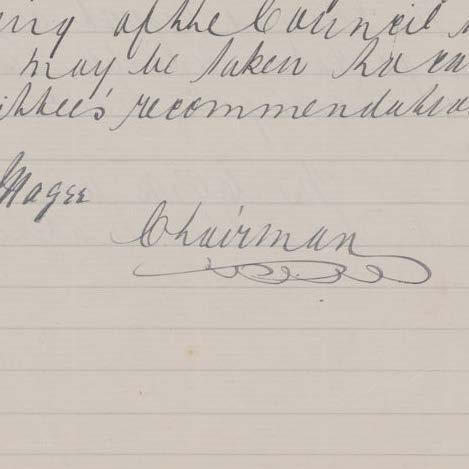 ing of the Council
may be taken
ittee's recommendation
Magee
Chairman